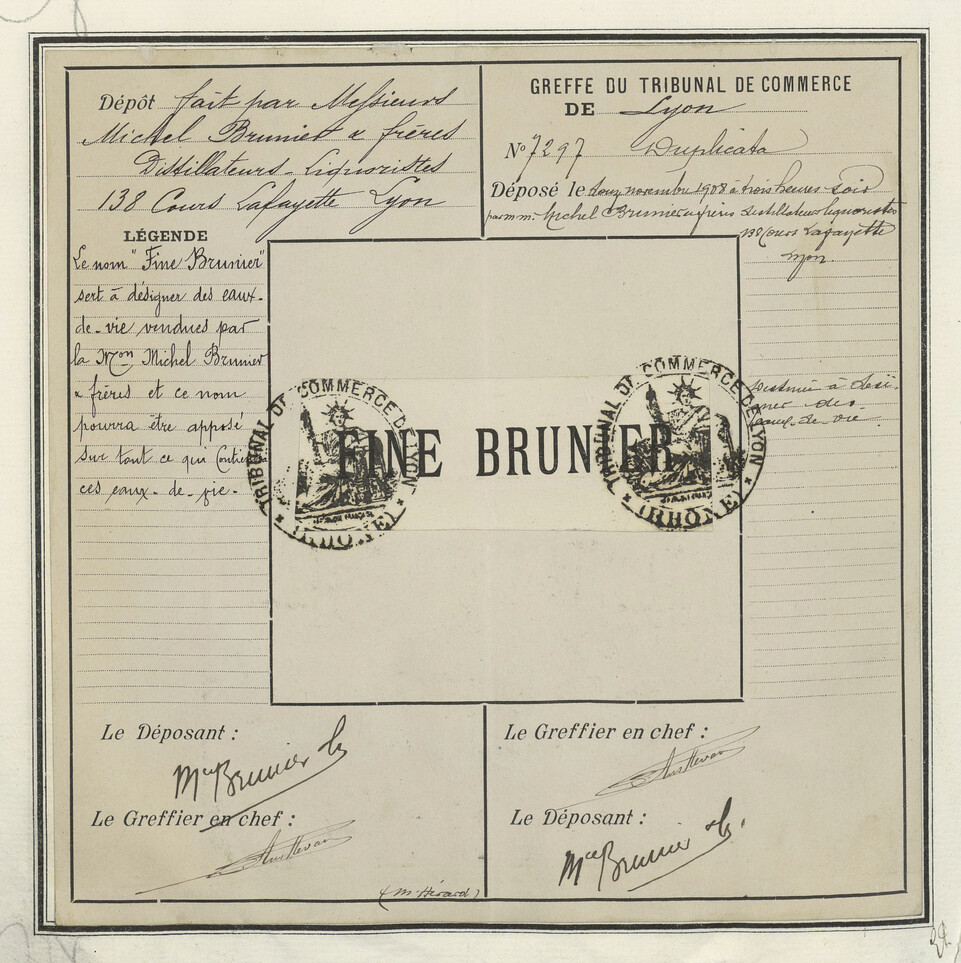 Dépôt fait par Messieurs
Michel Brunier & frères
Distillateurs-Liquoristes
138 Cours Lafayette Lyon
GREFFE DU TRIBUNAL DE COMMERCE
DE Lyon
No 7297 Duplicata
Déposé le douze novembre 1908 à trois heures soir
par m.m. Michel Brunier & frères distillateurs liquoristes
138 Cours Lafayette
Lyon.
LÉGENDE
Le nom "Fine Brunier"
sert à désigner des eaux-
de-vie vendues par
la Mon Michel Brunier
& frères et ce nom
pourra être apposé
sur tout ce qui contient
ces eaux-de-vie.
FINE BRUNIER
TRIBUNAL DE COMMERCE DE LYON
* (RHÔNE) *
TRIBUNAL DE COMMERCE DE LYON
* (RHÔNE) *
Destinée à dési-
gner des
eaux-de-vie.
Le Déposant :
Brunier
Le Greffier en chef :
(M. Hérard)
Le Greffier en chef :
Le Déposant :
Brunier